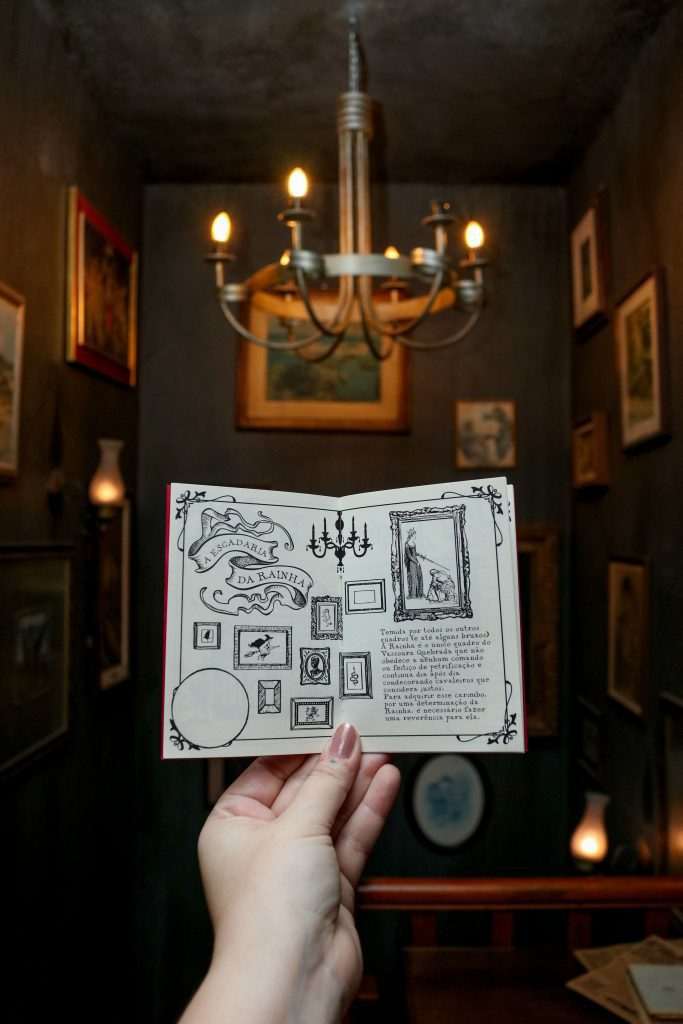 A ESCADARIA
DA RAINHA
Temida por todos os outros
quadros (e até alguns bruxos)
A Rainha é o único quadro do
Vassoura Quebrada que não
obedece a nenhum comando
ou feitiço de petrificação e
continua dia após dia
condecorando cavaleiros que
considera justos.
Para adquirir esse carimbo,
por uma determinação da
Rainha, é necessário fazer
uma reverência para ela.